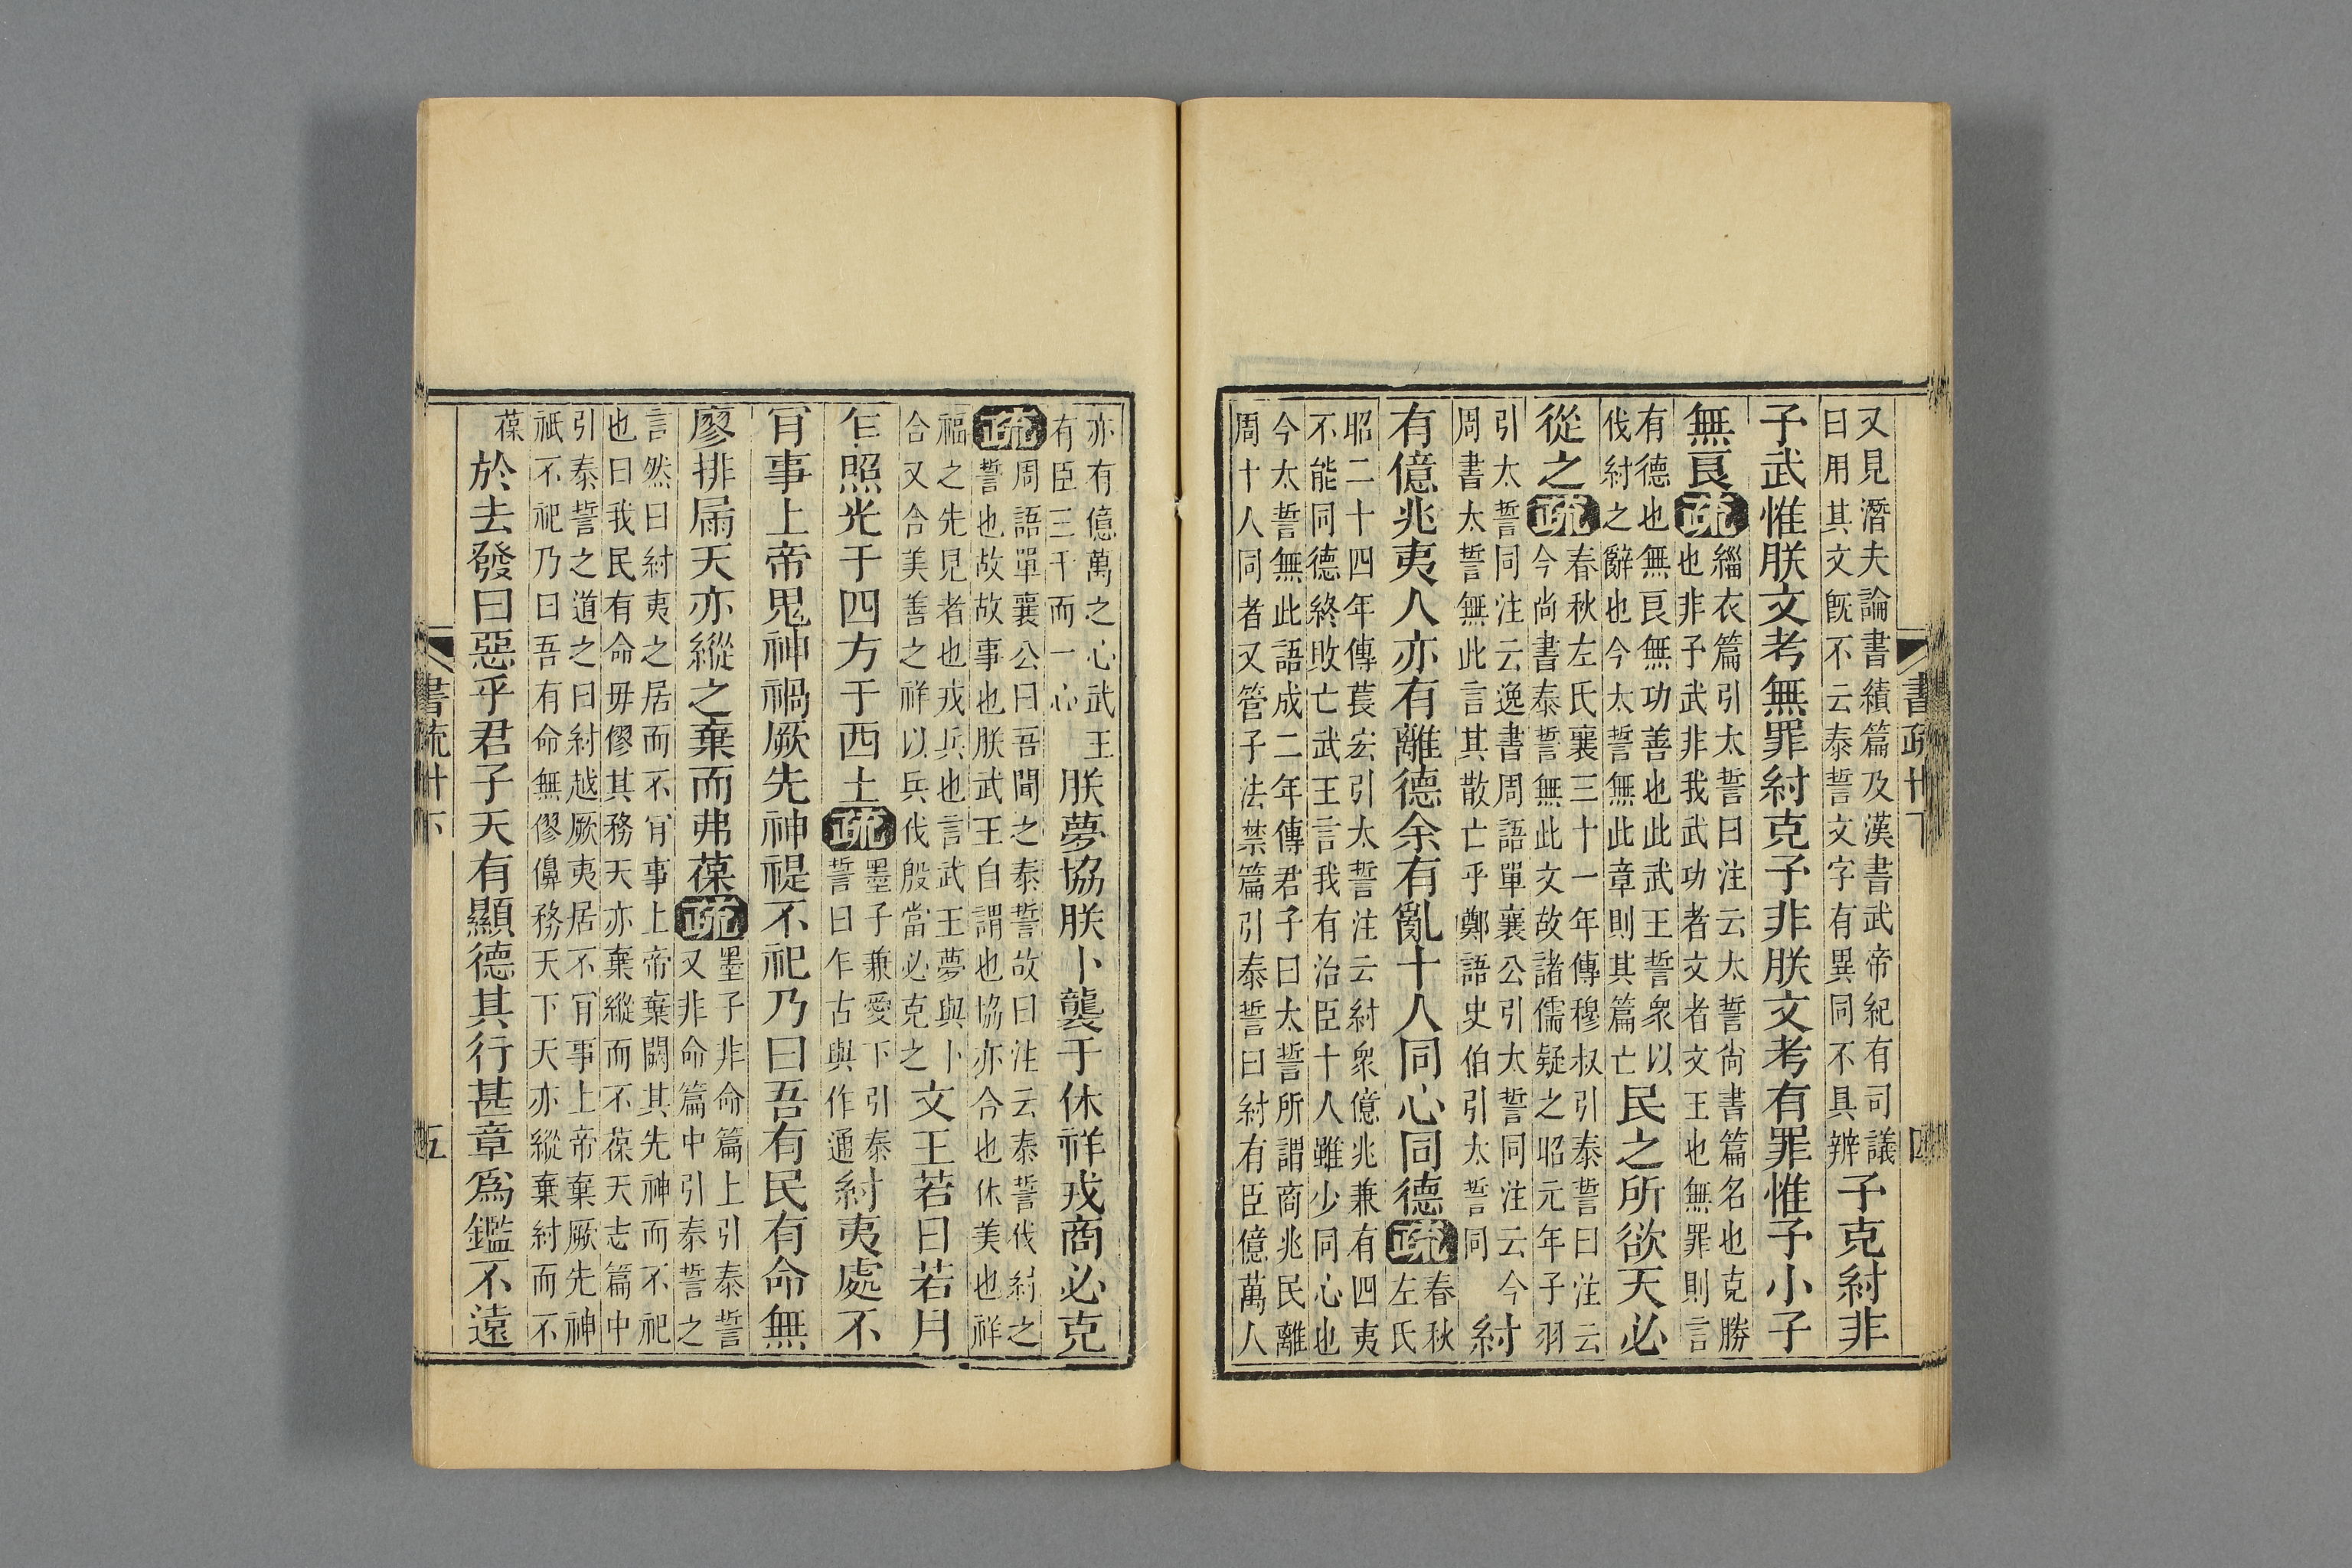 書疏卅下 四
又見潛夫論書績篇及漢書武帝紀有司議
曰用其文旣不云泰誓文字有異同不具辨
予克紂非
予武惟朕文考無罪紂克予非朕文考有罪惟予小子
無良疏
緇衣篇引太誓曰注云太誓尙書篇名也克勝
也非予武非我武功者文者文王也無罪則言
有德也無良無功善也此武王誓衆以
伐紂之辭也今太誓無此章則其篇亡
民之所欲天必
從之疏
春秋左氏襄三十一年傳穆叔引泰誓曰注云
今尚書泰誓無此文故諸儒疑之昭元年子羽
引太誓同注云逸書周語單襄公引太誓同注云今
周書太誓無此言其散亡乎鄭語史伯引太誓同
紂
有億兆夷人亦有離德余有亂十人同心同德疏
春秋
左氏
昭二十四年傳萇宏引太誓注云紂衆億兆兼有四夷
不能同德終敗亡武王言我有治臣十人雖少同心也
今太誓無此語成二年傳君子曰太誓所謂商兆民離
周十人同者又管子法禁篇引泰誓曰紂有臣億萬人
亦有億萬之心武王
有臣三千而一心
朕夢協朕卜襲于休祥戎商必克
疏
周語單襄公曰吾聞之泰誓故曰注云泰誓伐紂之
誓也故故事也朕武王自謂也協亦合也休美也祥
福之先見者也戎兵也言武王夢與卜
合又合美善之祥以兵伐殷當必克之
文王若日若月
乍照光于四方于西土疏
墨子兼愛下引泰
誓曰乍古與作通
紂夷處不
肎事上帝鬼神禍厥先神禔不祀乃曰吾有民有命無
廖排屚天亦縱之棄而弗葆疏
墨子非命篇上引泰誓
又非命篇中引泰誓之
言然曰紂夷之居而不肎事上帝棄闕其先神而不祀
也曰我民有命毋僇其務天亦棄縱而不葆天志篇中
引泰誓之道之曰紂越厥夷居不肎事上帝棄厥先神
祇不祀乃曰吾有命無僇㒋務天下天亦縱棄紂而不
葆
於去發曰惡乎君子天有顯德其行甚章爲鑑不遠
書疏卅下 五